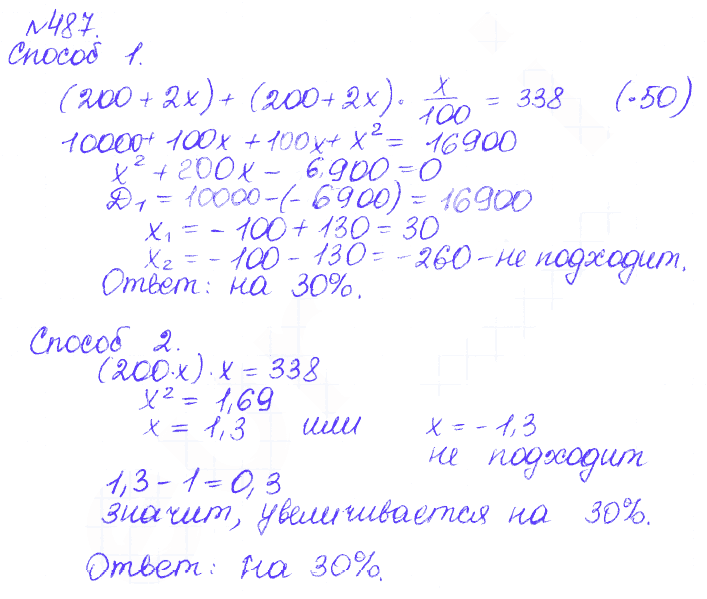 №487.
Способ 1.
(200 + 2x) + (200 + 2x) · x/100 = 338 (·50)
10000 + 100x + 100x + x² = 16900
x² + 200x - 6900 = 0
Д₁ = 10000 - (- 6900) = 16900
x₁ = - 100 + 130 = 30
x₂ = - 100 - 130 = - 260 - не подходит.
Ответ: на 30%.
Способ 2.
(200·x) · x = 338
x² = 1,69
x = 1,3 или x = - 1,3
не подходит
1,3 - 1 = 0,3
значит, увеличивается на 30%.
Ответ: на 30%.